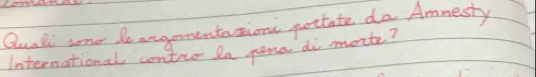 Quali sono le argomentazioni portate da Amnesty
International contro la pena di morte?